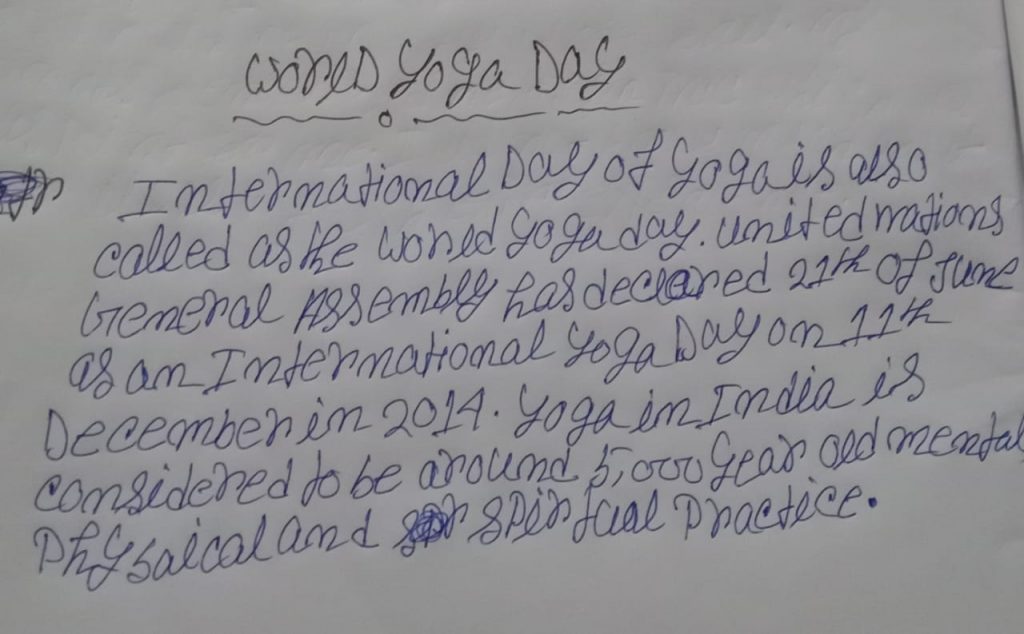 World Yoga Day
International Day of Yoga is also
called as the world yoga day. united nations
General Assembly has declared 21th of June
as an International Yoga Day on 11th
December in 2014. Yoga in India is
considered to be around 5,000 year old mental
Physaical and spiritual Practice.